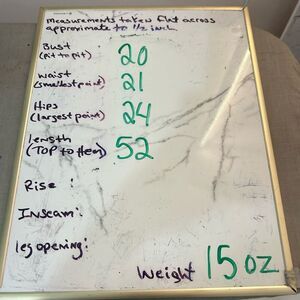 measurements taken flat across
approximate to 1/2 inch
Bust 20
(Pit to pit)
Waist 21
(smallest point)
Hips 24
(largest point)
length 52
(TOP to Hem)
Rise:
Inseam:
leg opening:
Weight 15 oz